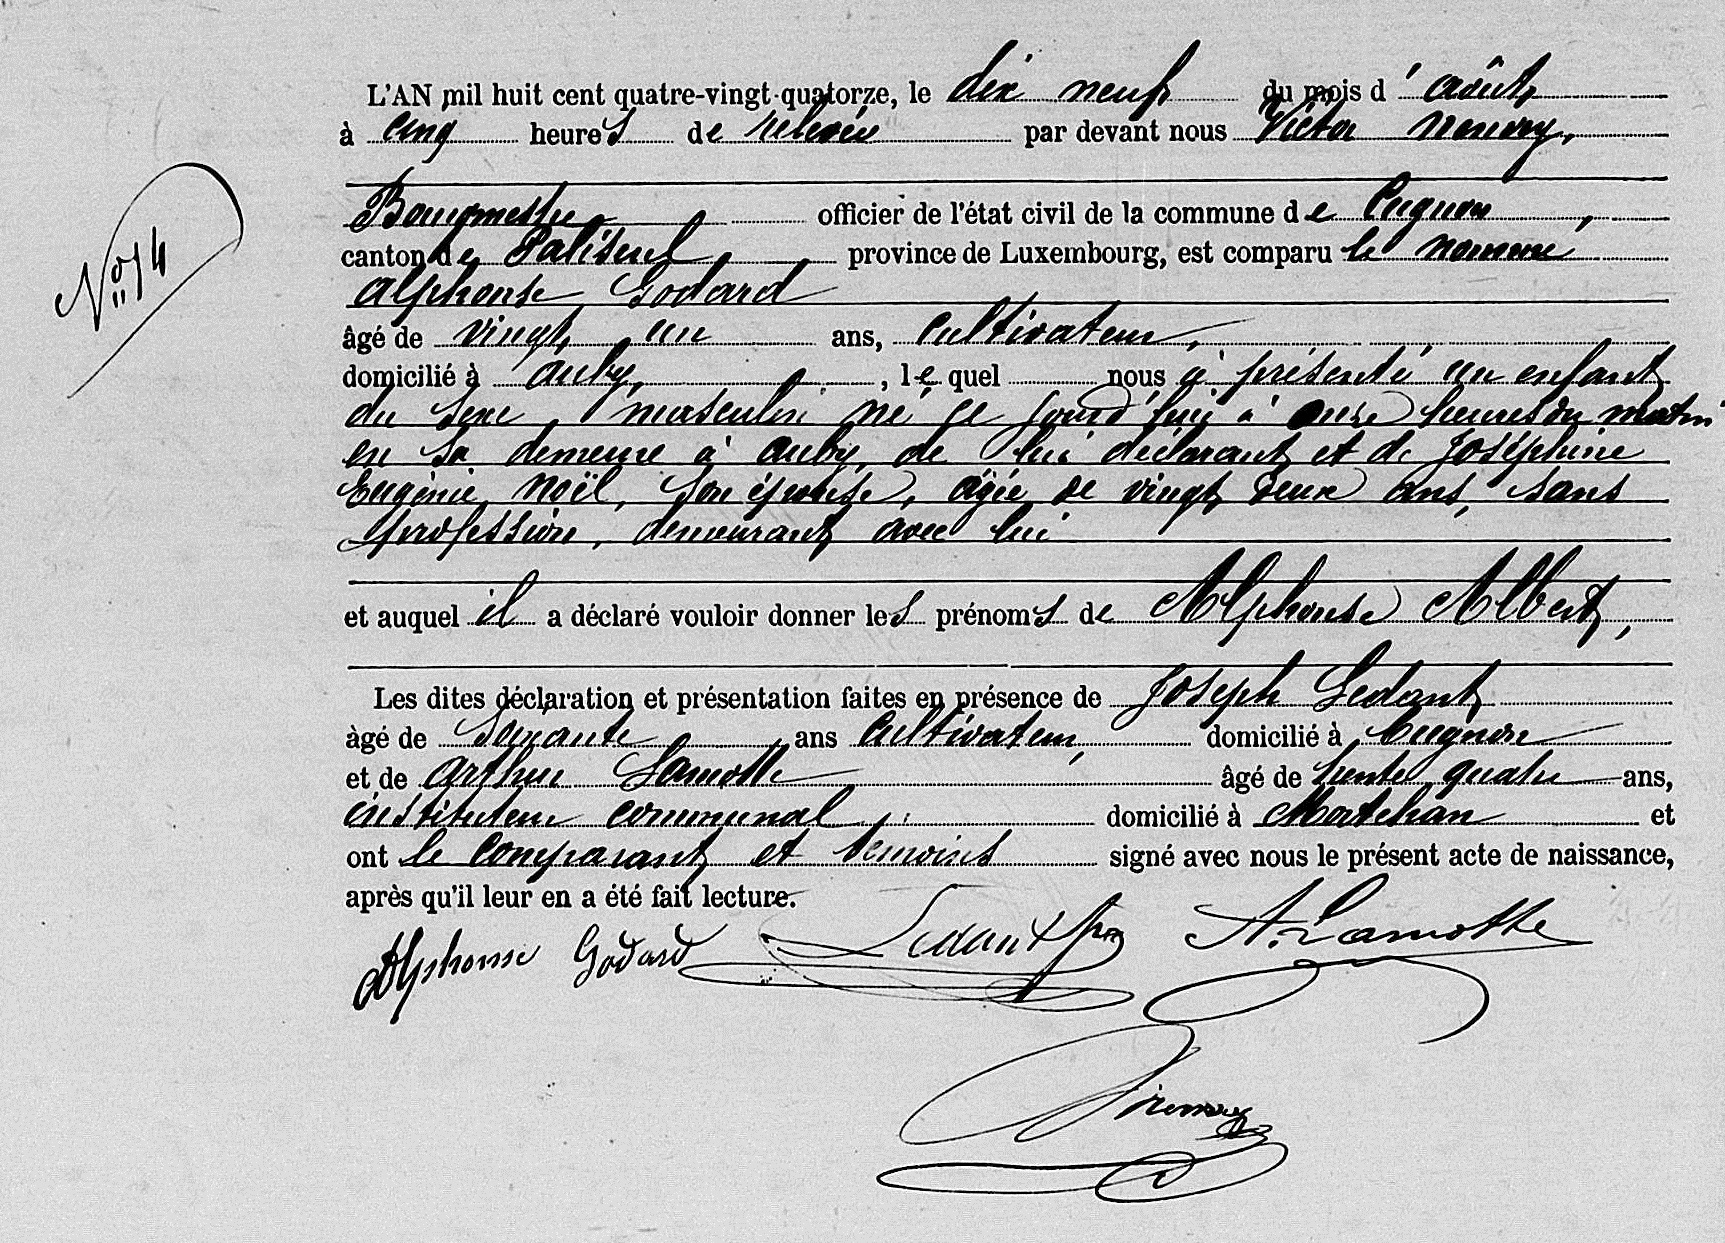 L'AN mil huit cent quatre-vingt-quatorze, le dix neuf du mois d'août,
à cinq heures de relevée par devant nous Victor
Bourgmestre officier de l'état civil de la commune de Cugnon,
canton de Paliseul, province de Luxembourg, est comparu le nommé
Nº 14
Alphonse Godard
âgé de vingt un ans, cultivateur,
domicilié à Auby, , lequel nous a présenté un enfant
du sexe masculin né ce jourd'hui à onze heures du matin
en sa demeure à Auby, de lui déclarant et de Joséphine
Eugénie Noël, son épouse, âgée de vingt deux ans, sans
profession, demeurant avec lui
et auquel il a déclaré vouloir donner les prénoms de Alphonse Albert,
Les dites déclaration et présentation faites en présence de Joseph Ledant,
âgé de soixante ans cultivateur, domicilié à Cugnon
et de Arthur Lamotte âgé de trente quatre ans,
instituteur communal, domicilié à Mortehan et
ont le comparant et témoins signé avec nous le présent acte de naissance,
après qu'il leur en a été fait lecture.
Alphonse Godard Ledant A. Lamotte